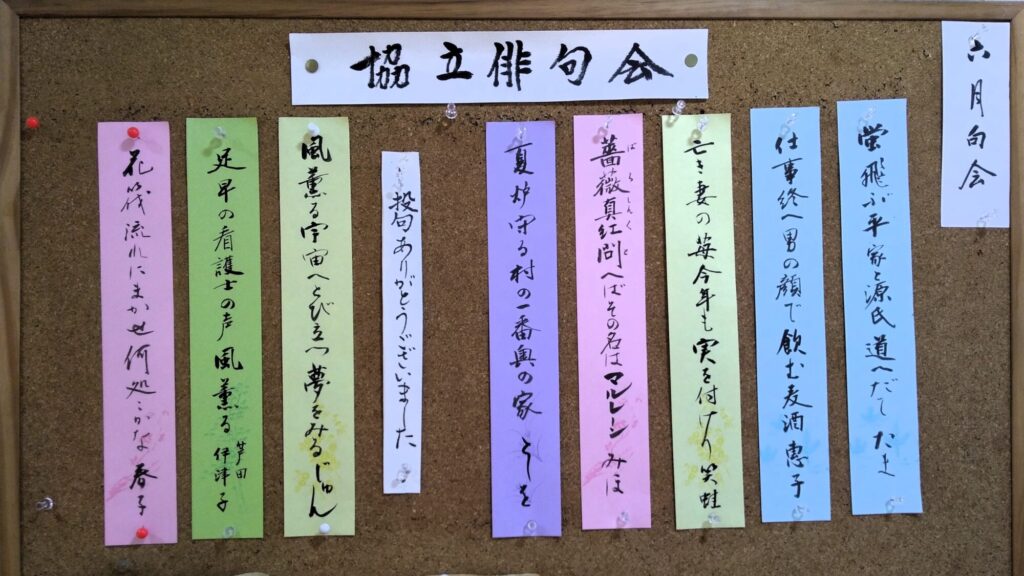 協立俳句会
六月句会
蛍飛ぶ平家と源氏道へだて たま
仕事終へ男の顔で飲む麦酒 恵子
亡き妻の苺今年も実を付けり 笑蛙
薔薇真紅問へばその名はマルレーン みほ
ばらしんくと
夏炉守る村の一番奥の家 としを
投句ありがとうございました
風薫る宇宙へとび立つ夢をみる じゅん
足早の看護士の声風薫る 芦田伊津子
花筏流れにまかせ何処ゝがな 春子